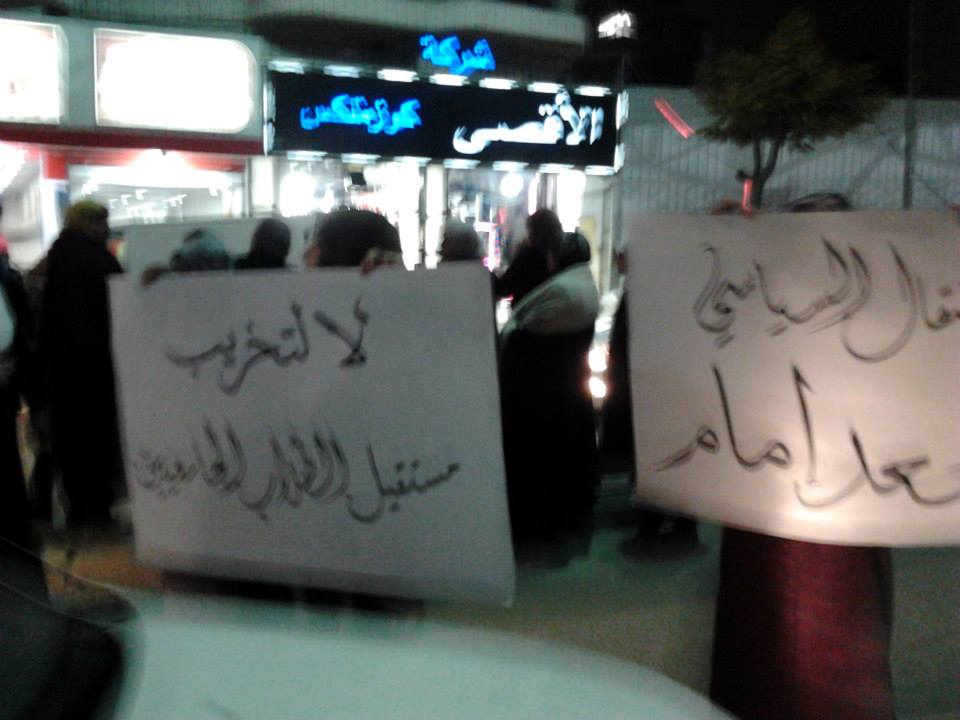 شركة
الأقصى كوزمتكس
لا لتخريب
مستقبل الطلاب الجامعيين
السياسي
امام